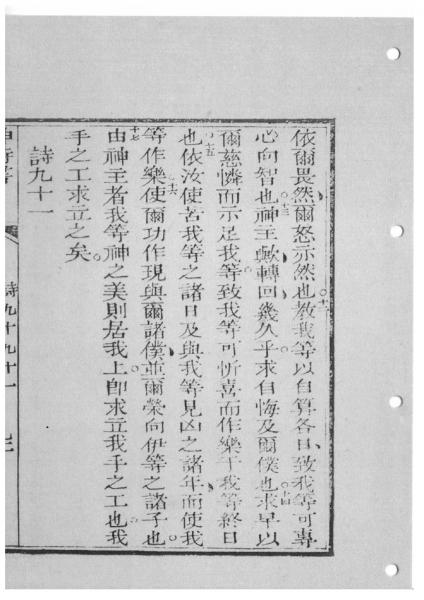 依爾畏然爾怒亦然也○十二教我等以自算各日致我等可專
心向智也○十三神主歟轉回幾久乎求自悔及爾僕也○十四求早以
爾慈憐而示足我等致我等可忻喜而作樂于我等終日
也○十五依汝使苦我等之諸日及與我等見凶之諸年而使我
等作樂○十六使爾功作現與爾諸僕並爾榮向伊等之諸子也
○十七由神主者我等神之美則居我上即求立我手之工也我
手之工求立之矣
詩九十一
詩九十九十一